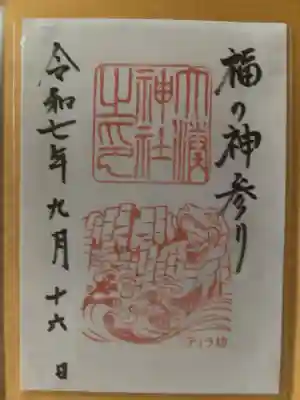 福の神参り
大濱
神社
之印
令和七年九月十六日